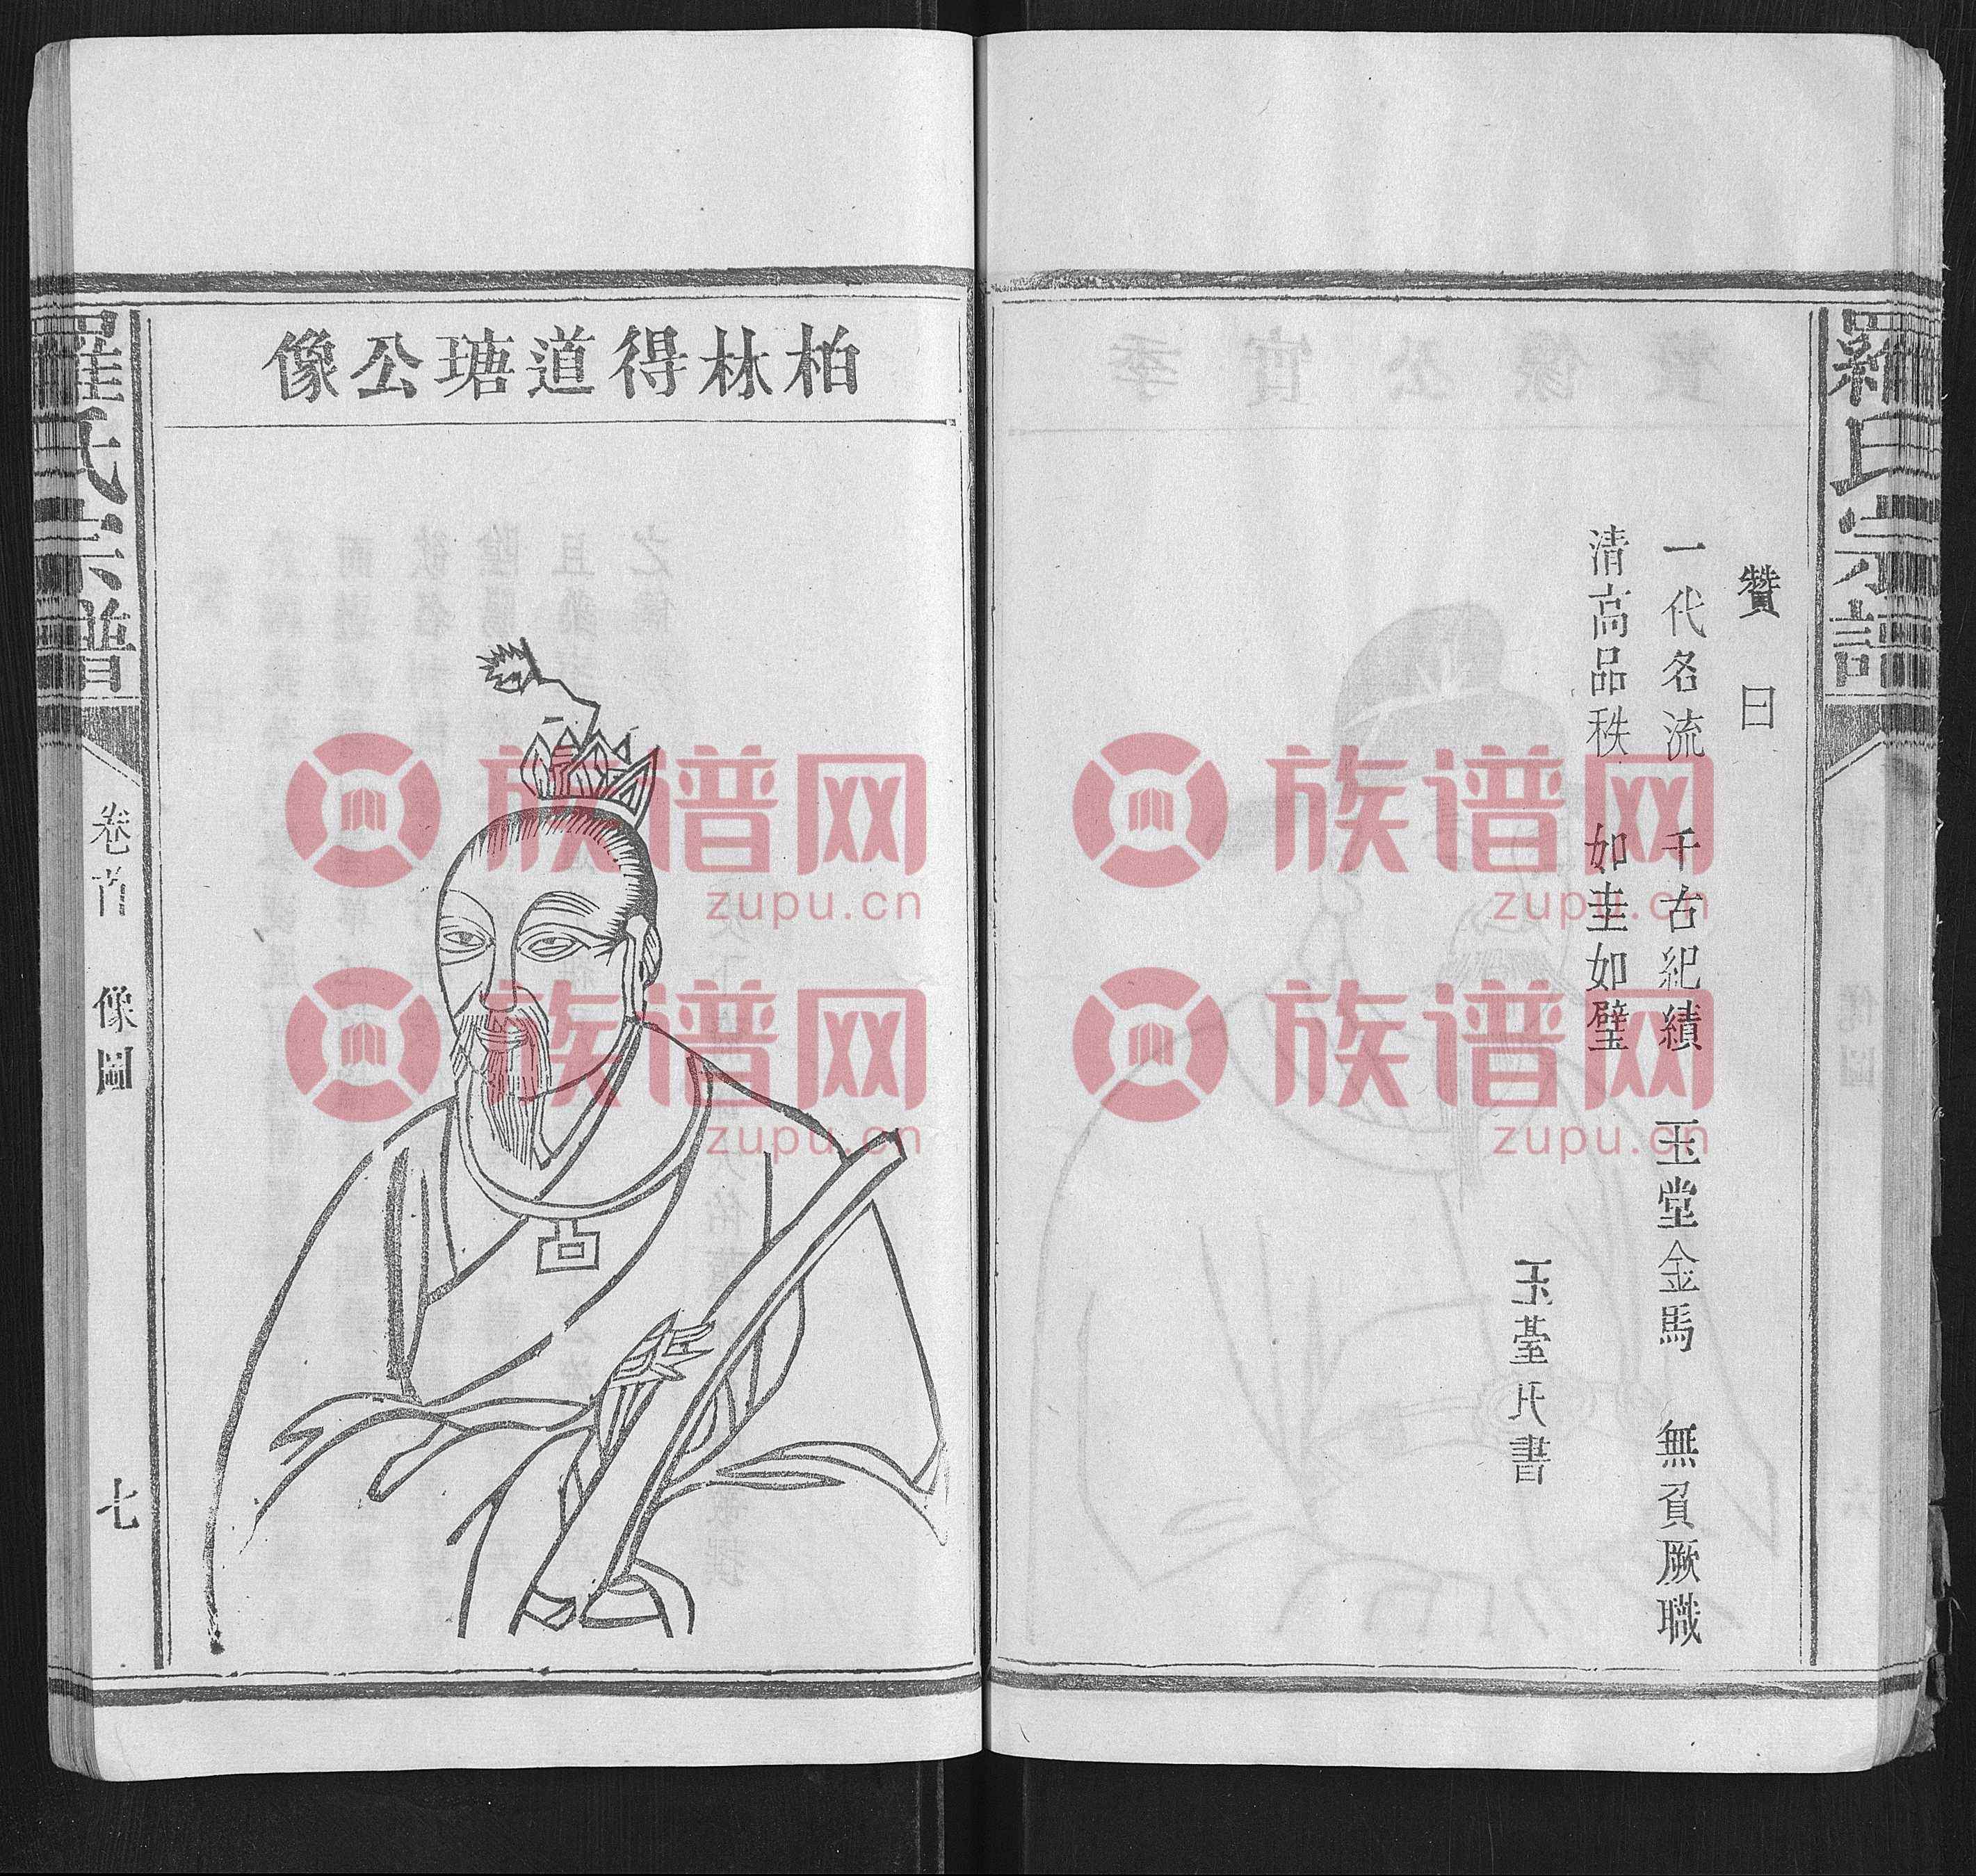 羅氏宗譜
贊曰
一代名流 千古紀績 玉堂金馬 無負厥職
清高品秩 如圭如璧
玉臺氏書
柏林得道瑭公像
羅氏宗譜
卷首 像圖
七
族谱网
zupu.cn
族谱网
zupu.cn
族谱网
zupu.cn
族谱网
zupu.cn